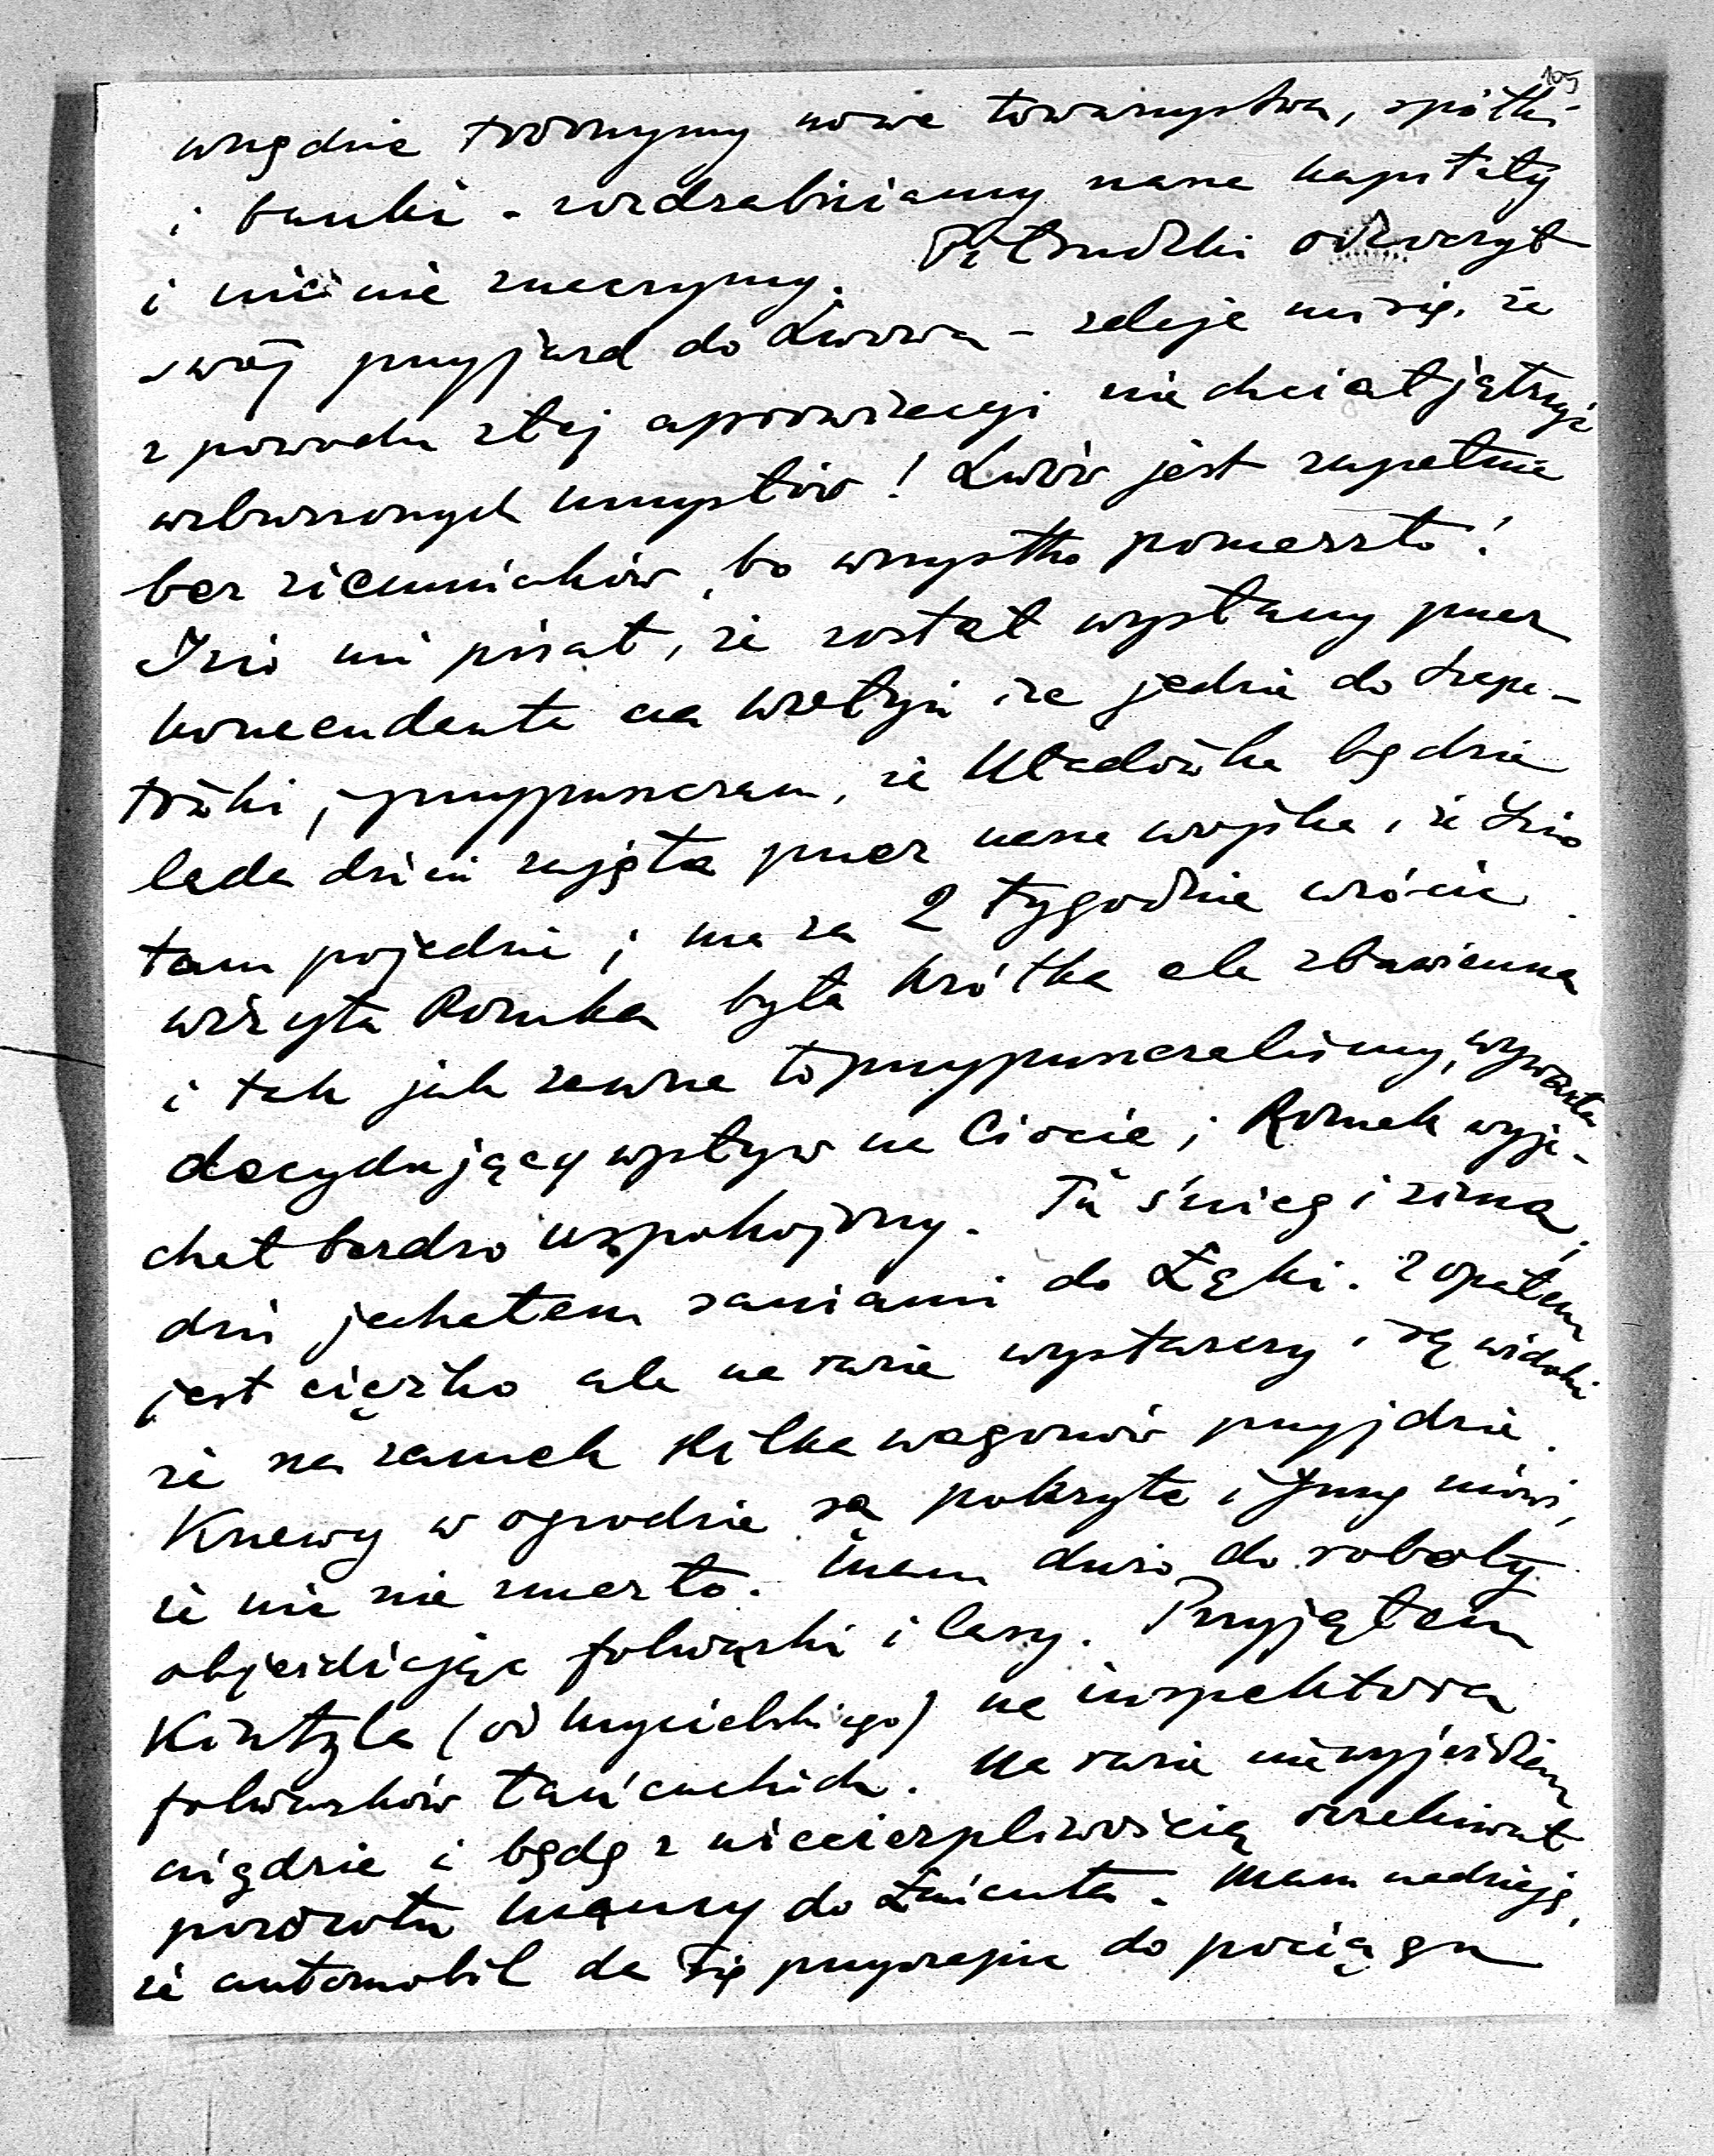 105
wszędzie tworzymy nowe towarzystwa, spółki
i banki - rozdrabniamy nasze kapitały
i nic nie znaczymy. Piłsudzki odroczył
swój przyjazd do Lwowa - zdaje mi się, że
z powodu złej aprowizacyi nie chciał jątrzyć
wzburzonych umysłów! Lwów jest zupełnie
bez ziemniaków, bo wszystko pomarzło!
Izio mi pisał, że został wysłany przez
komendanta na Wołyń i że jedzie do Szepe-
tówki, przypuszczam, że Uładówka będzie
lada dzień zajęta przez nasze wojska, i że Izio
tam pojedzie; ma za 2 tygodnie wrócić.
Wizyta Romka była krótka ale zbawienna
i tak jak zawsze to przypuszczaliśmy, wywarła
decydujący wpływ na Ciocię; Romek wyje-
chał bardzo uspokojony. Tu śnieg i zima,
dziś jechałem saniami do Łąki. Z opałem
jest ciężko ale na razie wystarczy i są widoki
że na zamek kilka wagonów przyjdzie.
Krzewy w ogrodzie są pokryte i Jung mówi,
że nic nie zmarzło. Mam dużo do roboty
objeżdżając folwarki i lasy. Przyjąłem
Kintzla (od Mycielskiego) na inspektora
folwarków łańcuckich. Na razie nie wyjeżdżam
nigdzie i będę z niecierpliwością oczekiwał
powrotu Mamy do Łańcuta. Mam nadzieję,
że automobil da się przyczepić do pociągu